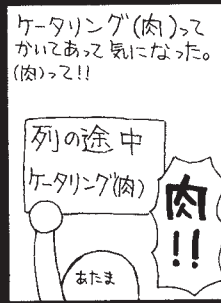 ケータリング(肉)って
かいてあって気になった。
(肉)って!!
列の途中
ケータリング(肉)
肉
!!
あたま